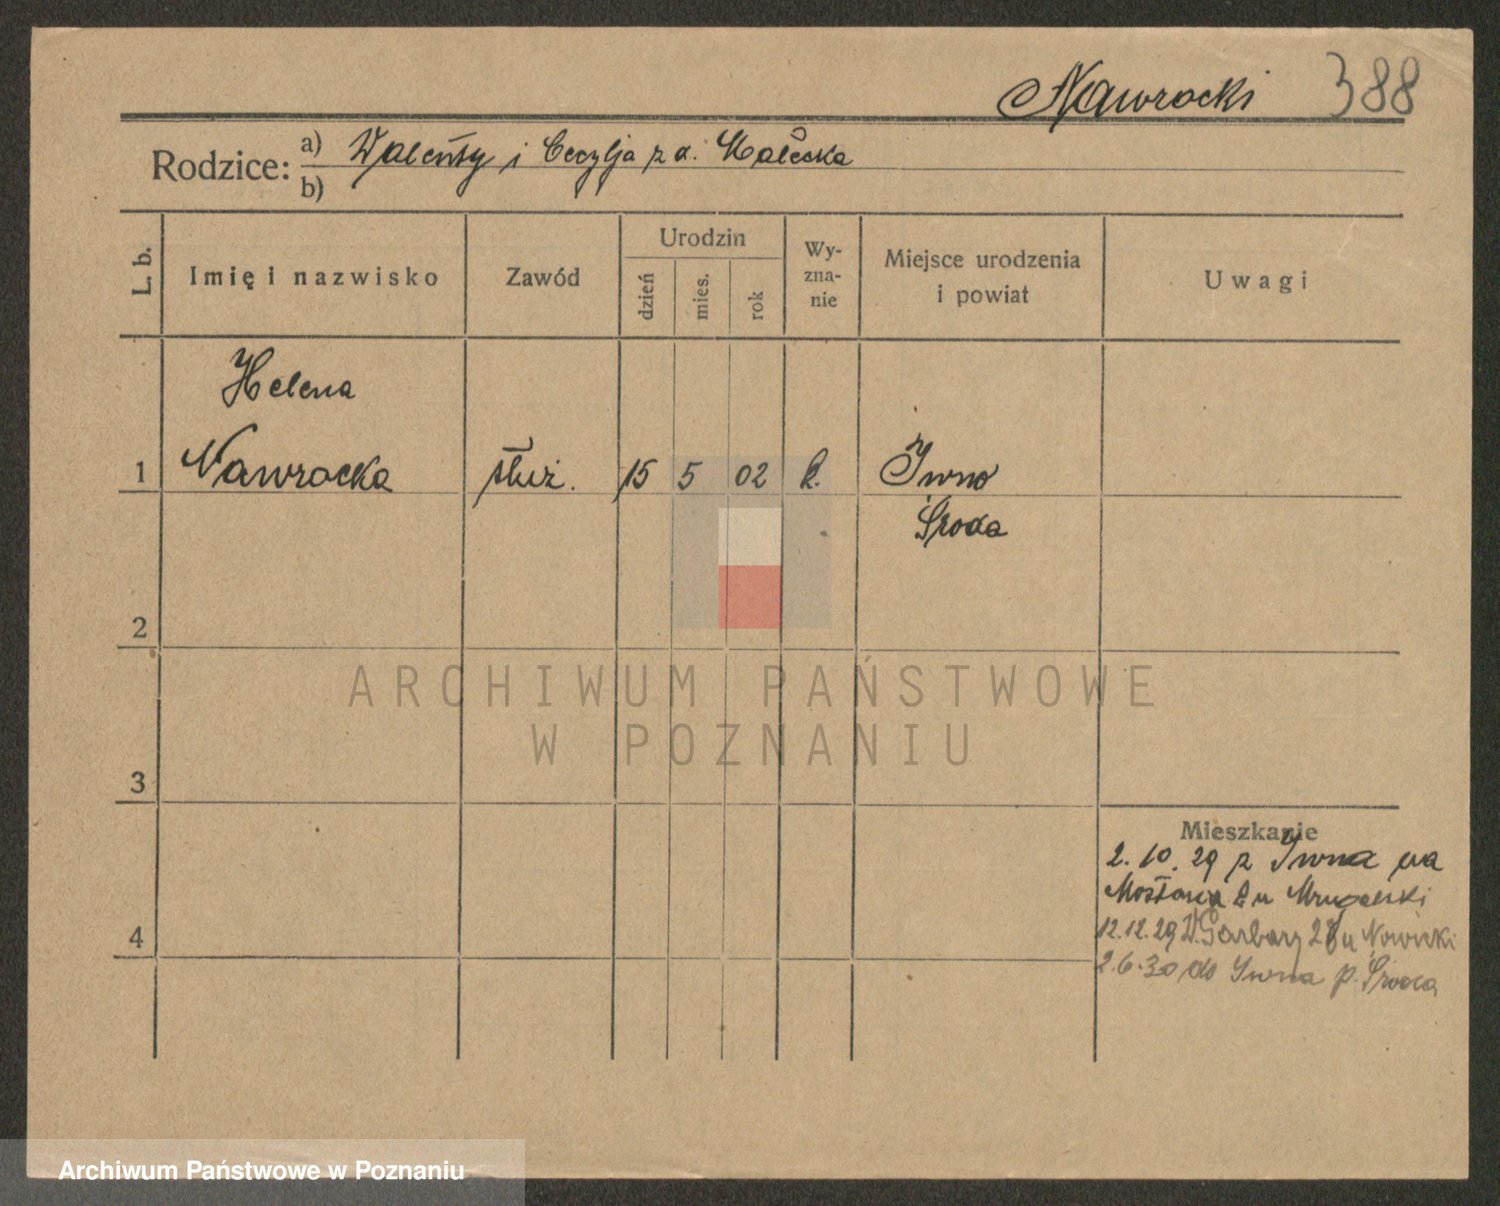 Nawrocki 388
Rodzice: a) Walenty i Cecylja z d.
b)
L. b.
Imię i nazwisko
Zawód
Urodzin
dzień
mies.
rok
Wy-
zna-
nie
Miejsce urodzenia
i powiat
Uwagi
Helena
1 Nawrocka służ. 15 5 02 k. Iwno
Środa
2
3
4
Mieszkanie
2.10.29 z Iwna na
2 u
12.12.29 W. Garbary u Nowicki
2.6.30 do Iwna p. Środa
ARCHIWUM PAŃSTWOWE
W POZNANIU
Archiwum Państwowe w Poznaniu